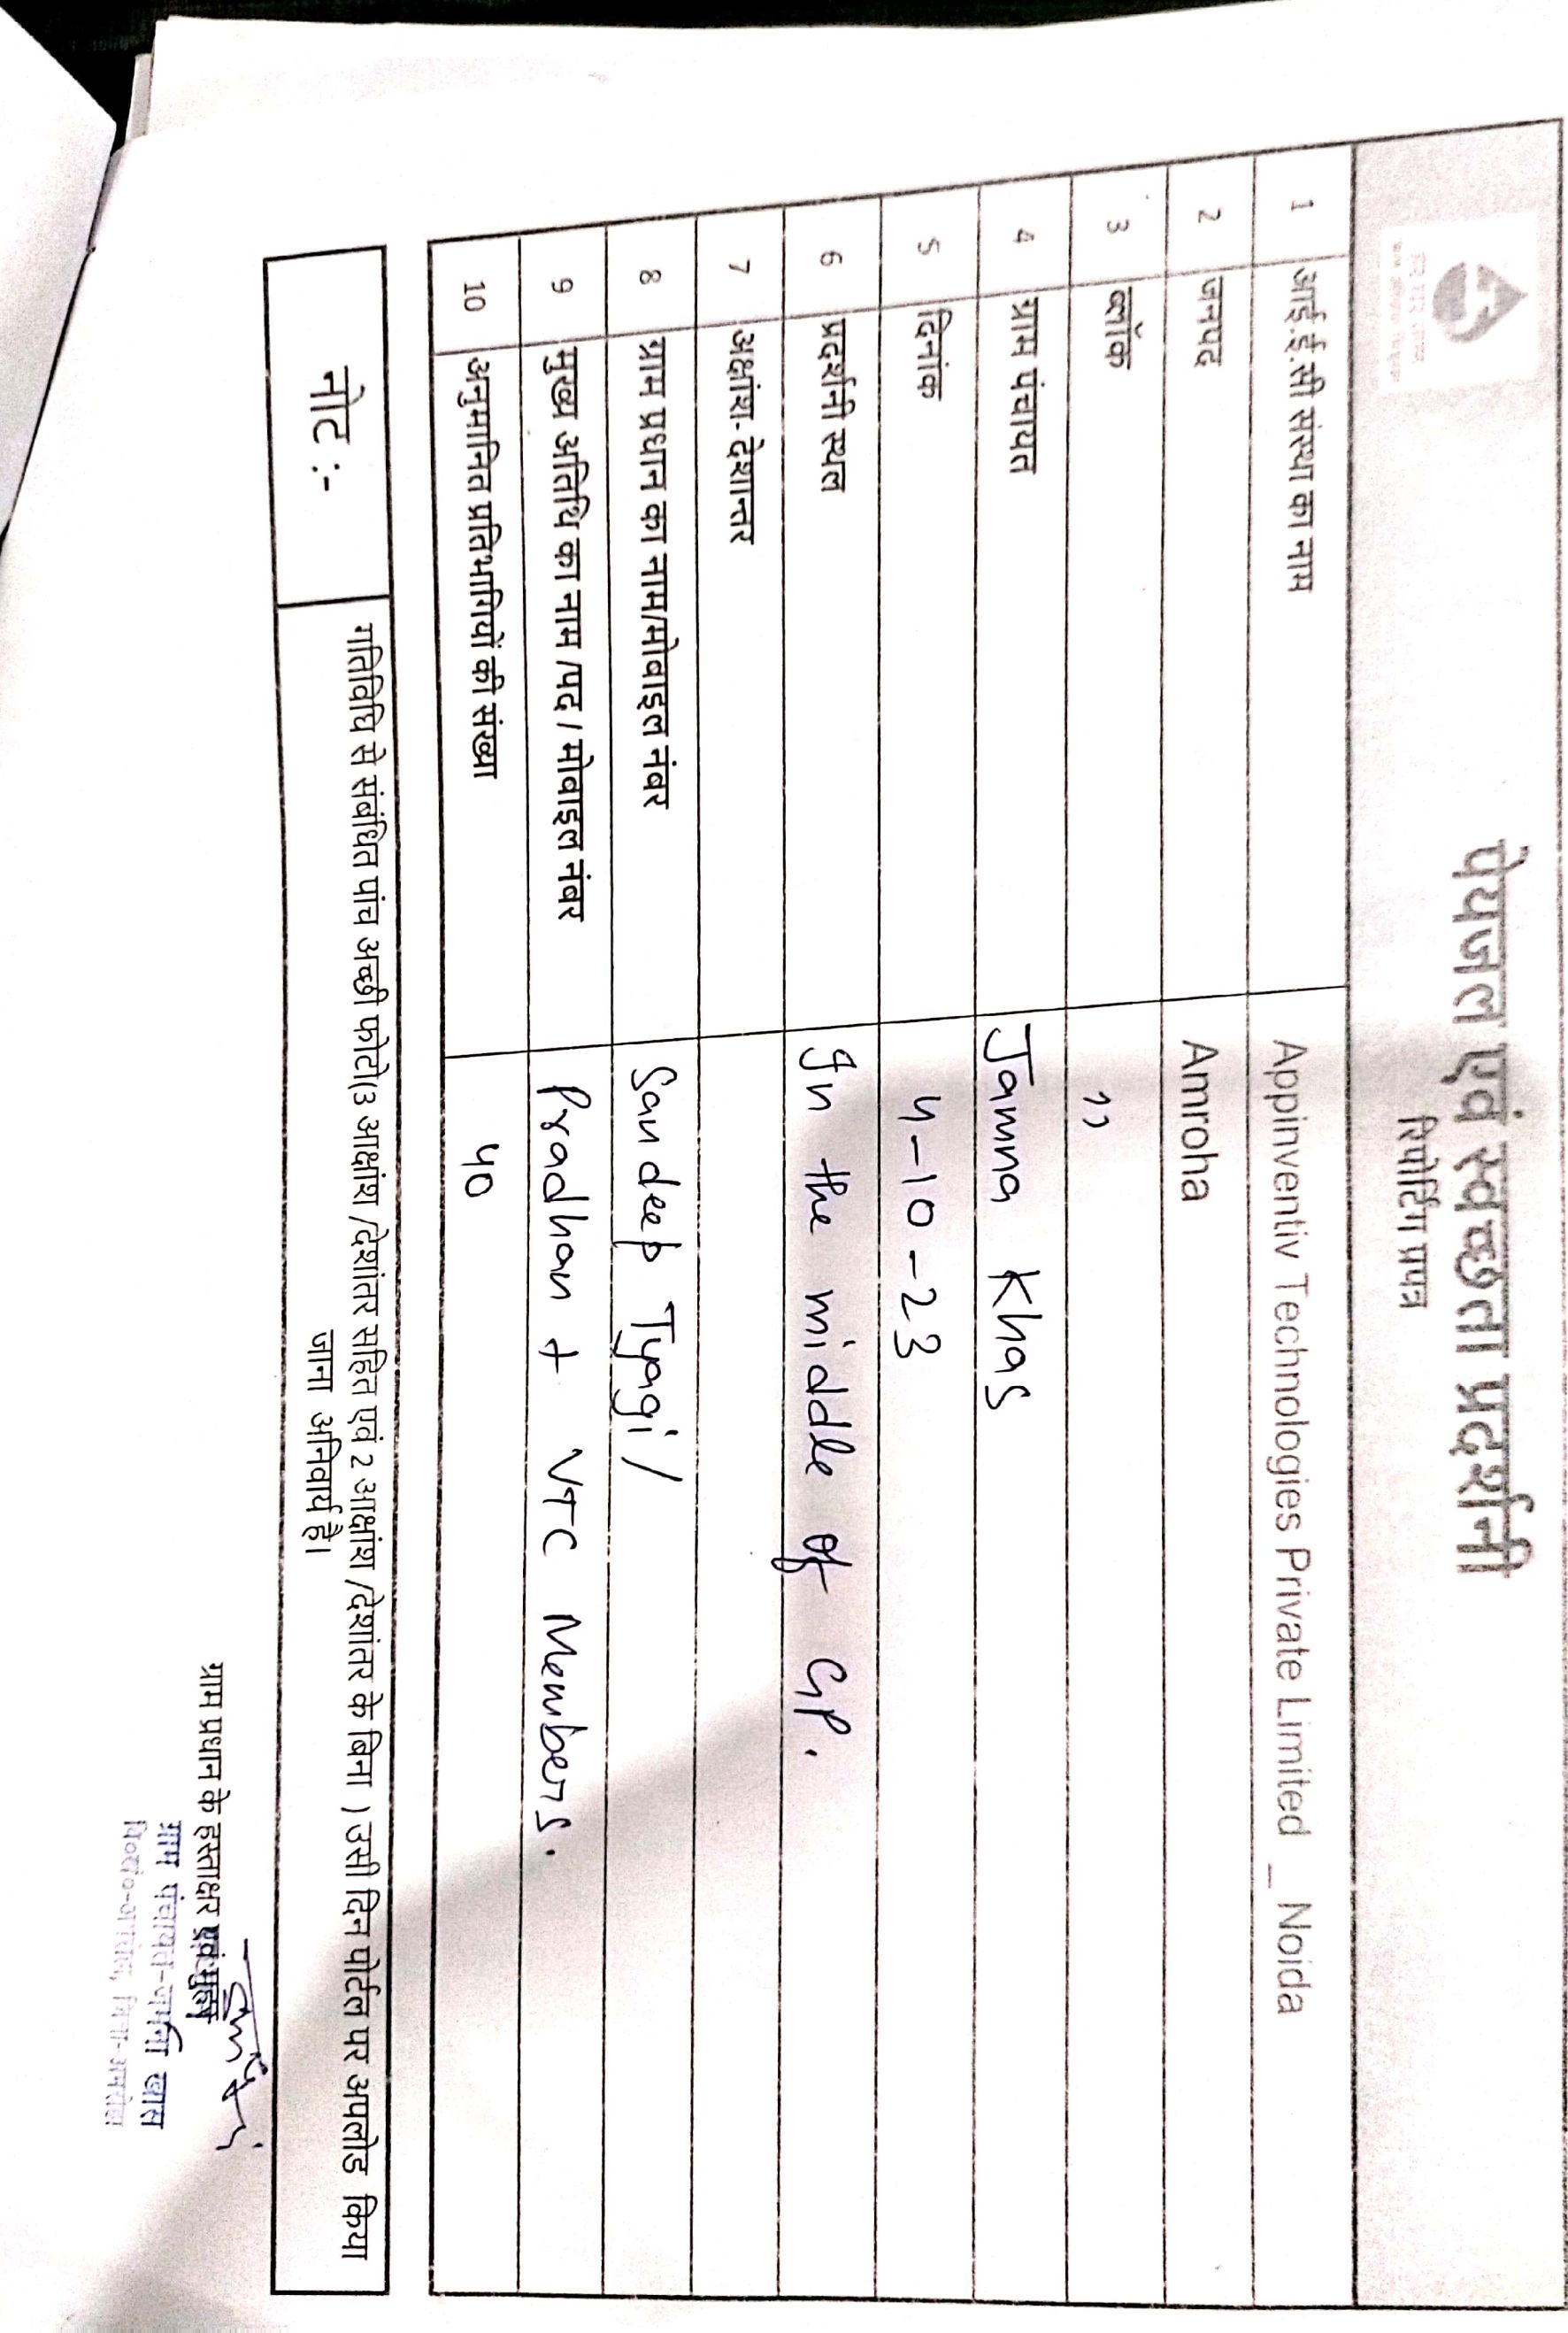 पेयजल एवं स्वच्छता प्रदर्शनी
रिपोर्टिंग प्रपत्र
1 आई.ई.सी संस्था का नाम Appinventiv Technologies Private Limited _ Noida
2 जनपद Amroha
3 ब्लॉक ,,
4 ग्राम पंचायत Jamna Khas
5 दिनांक 4-10-23
6 प्रदर्शनी स्थल In the middle of GP.
7 अक्षांश- देशान्तर
8 ग्राम प्रधान का नाम/मोबाइल नंबर Sandeep Tyagi /
9 मुख्य अतिथि का नाम /पद / मोबाइल नंबर Pradhan + VTC Members.
10 अनुमानित प्रतिभागियों की संख्या 40
नोट :-
गतिविधि से संबंधित पांच अच्छी फोटो(3 आक्षांश /देशांतर सहित एवं 2 आक्षांश /देशांतर के बिना ) उसी दिन पोर्टल पर अपलोड किया
जाना अनिवार्य है।
ग्राम प्रधान के हस्ताक्षर एवं मुहर
ग्राम पंचायत-जमना खास